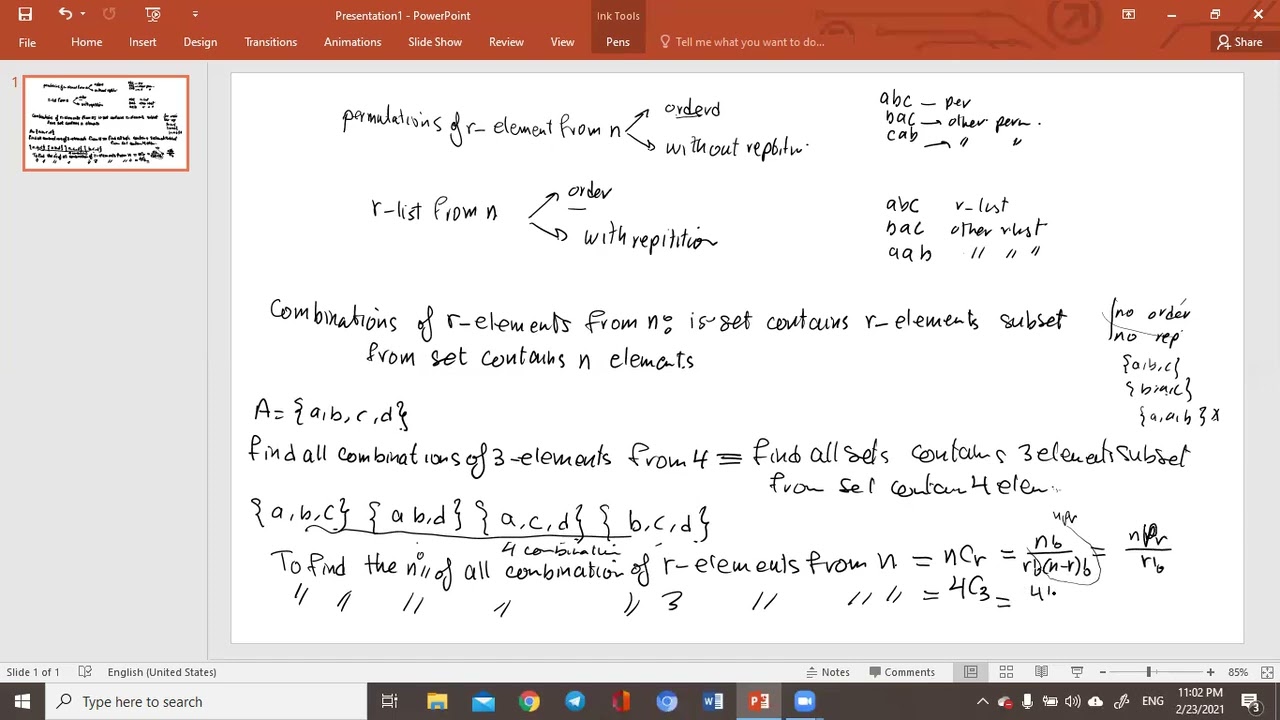 Presentation1 - PowerPoint
Ink Tools
File Home Insert Design Transitions Animations Slide Show Review View Pens Tell me what you want to do... Share
1
permulations of r- element from n
orderd
without
abc - per
bac → other perm.
cab → " "
r-list from n
order
with repitition
abc r-list
bac other r-list
aab " " "
Combinations of r-elements from n: is set contains r-elements subset
from set contains n elements
no order
no rep
{a,b,c}
{b,a,c}
{a,a,b} x
A = {a,b,c,d}
find all combinations of 3-elements from 4 ≡ find all sets contains 3 element subset
from set contan 4 elen
{a,b,c} {a b,d} {a,c,d} {b,c,d}
4 combination
nPr
To find the n" of all combination of r-elements from n = nCr = n! / r!(n-r)! = nPr / r!
" " " " " 3 " " " = 4C3 = 4!
Slide 1 of 1 English (United States) Notes Comments 85%
Type here to search
ENG
11:02 PM
2/23/2021
3